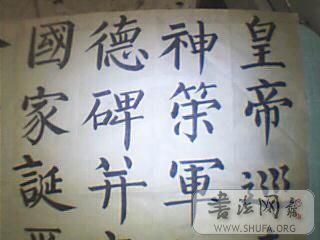 皇帝巡
神策軍
德碑并
國家誕
書法网
WWW.SHUFA.ORG